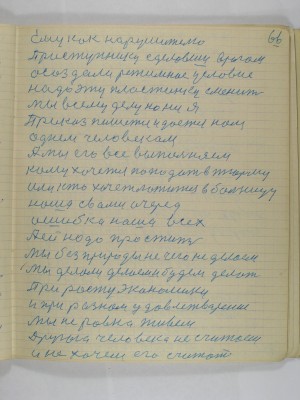 66
Ему как нарушителю
Приступнику сделовши врагом
осоздали режимное условие
надо эту пластинку сменить
мы всему делу кони Я
Приказ пишити и дается нам
одним человеком
А мы его все выполняем
кому хочется попадать в тюрму
или кто хочет ложится в больницу
наша с вами очеред
ошибка наша всех
Ей надо простить
мы без природы не чего не делаем
мы делали делаем будем делат
При росту Экономики
и при разном удовлетворение
мы не ровна живем
Друга человека не считаем
и не хочем его считат